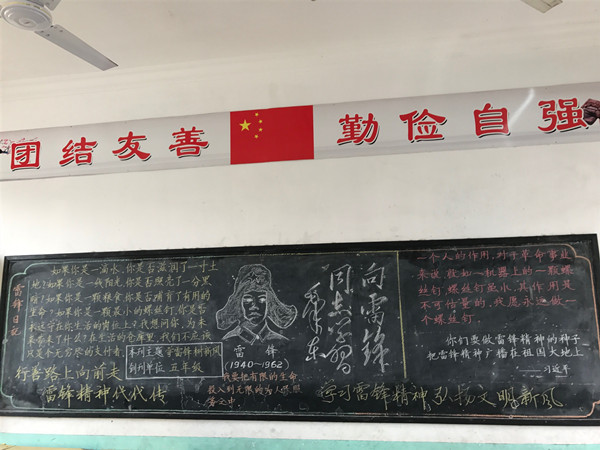 团结友善
勤俭自强
雷锋日记
如果你是一滴水,你是否滋润了一寸土
地?如果你是一线阳光,你是否照亮了一分黑
暗?如果你是一颗粮食,你是否哺育了有用的
生命?如果你是一颗最小的螺丝钉,你是否
永远守在你生活的岗位上?我想问你,为未
来带来了什么?在生活的仓库里,我们不应该
只是个无穷尽的支付者。
本刊主题 学雷锋树新风
创刊单位 五年级
行善路上向前走
雷锋精神代代传
雷锋
(1940-1962)
我要把有限的生命,
投入到无限的为人民服
务之中
向雷锋
同志学习
毛泽东
学习雷锋精神 弘扬文明新风
一个人的作用,对于革命事业
来说,就如一机器上的一颗螺
丝钉。螺丝钉虽小,其作用是
不可估量的,我愿永远做一
个螺丝钉。
你们要做雷锋精神的种子
把雷锋精神广播在祖国大地上
——习近平